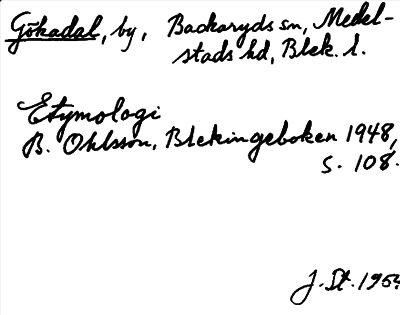 Gökadal, by, Backaryds sn, Medel-
stads hd, Blek. l.
Etymologi
B. Ohlsson, Blekingeboken 1948,
s. 108.
J. Dt. 1954